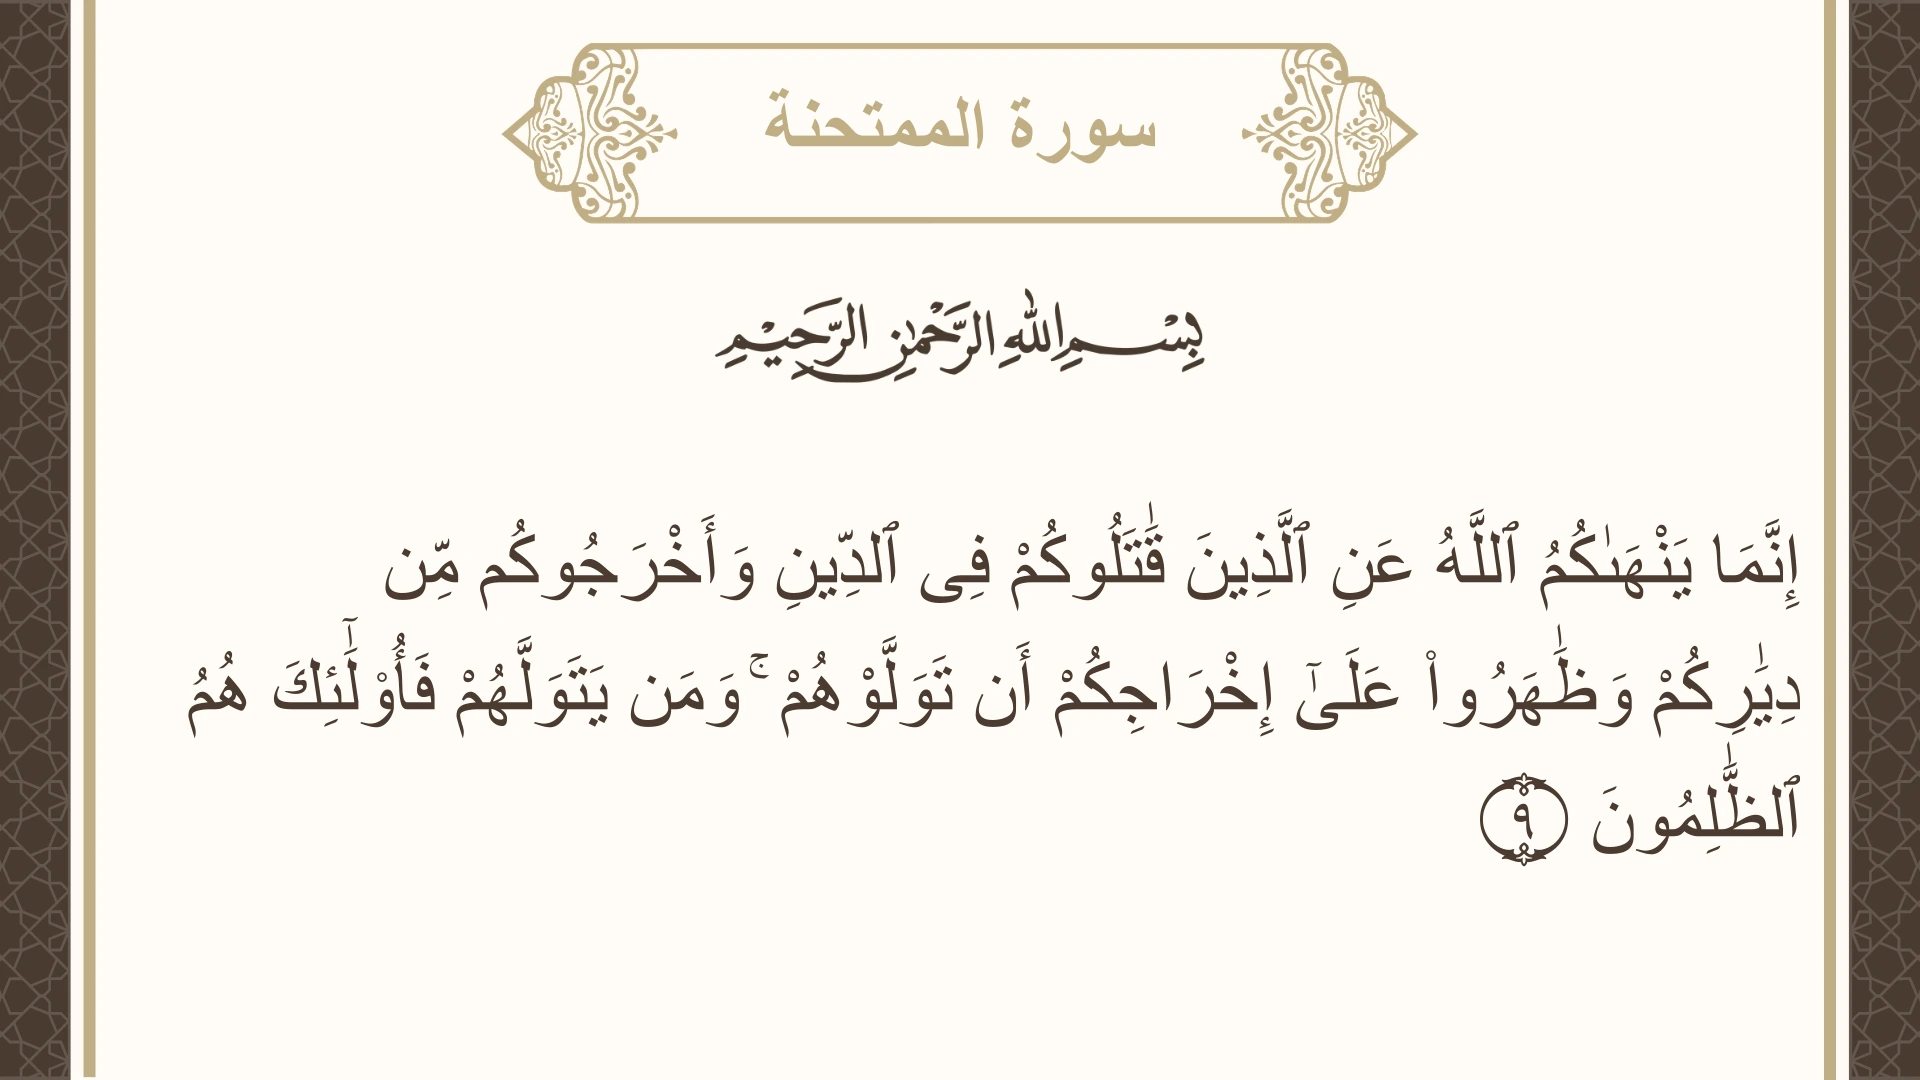 سورة الممتحنة
بِسْمِ اللهِ الرَّحْمٰنِ الرَّحِيْمِ
إِنَّمَا يَنْهَىٰكُمُ ٱللَّهُ عَنِ ٱلَّذِينَ قَٰتَلُوكُمْ فِى ٱلدِّينِ وَأَخْرَجُوكُم مِّن
دِيَٰرِكُمْ وَظَٰهَرُوا۟ عَلَىٰٓ إِخْرَاجِكُمْ أَن تَوَلَّوْهُمْ ۚ وَمَن يَتَوَلَّهُمْ فَأُو۟لَٰٓئِكَ هُمُ
ٱلظَّٰلِمُونَ ٩